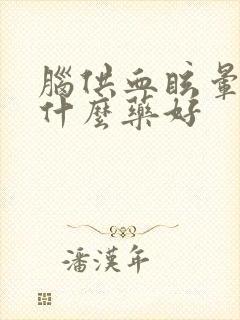 腦供血眩暈
什麼藥好
潘漢年